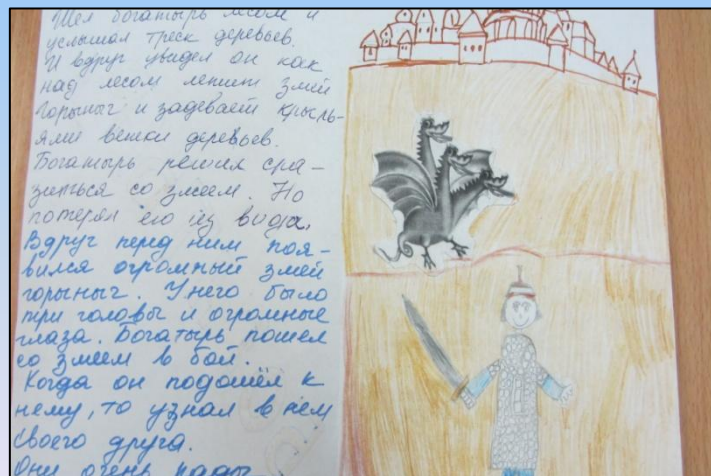 Шел богатырь лесом и
услышал треск деревьев.
И вдруг увидел он как
над лесом летит змей
горыныч и задевает крыль-
ями ветки деревьев.
Богатырь решил сра-
зиться со змеем. Но
потерял его из вида.
Вдруг перед ним поя-
вился огромный змей
горыныч. У него было
три головы и огромные
глаза. Богатырь пошел
со змеем в бой.
Когда он подошёл к
нему, то узнал в нем
своего друга.
Они очень рады